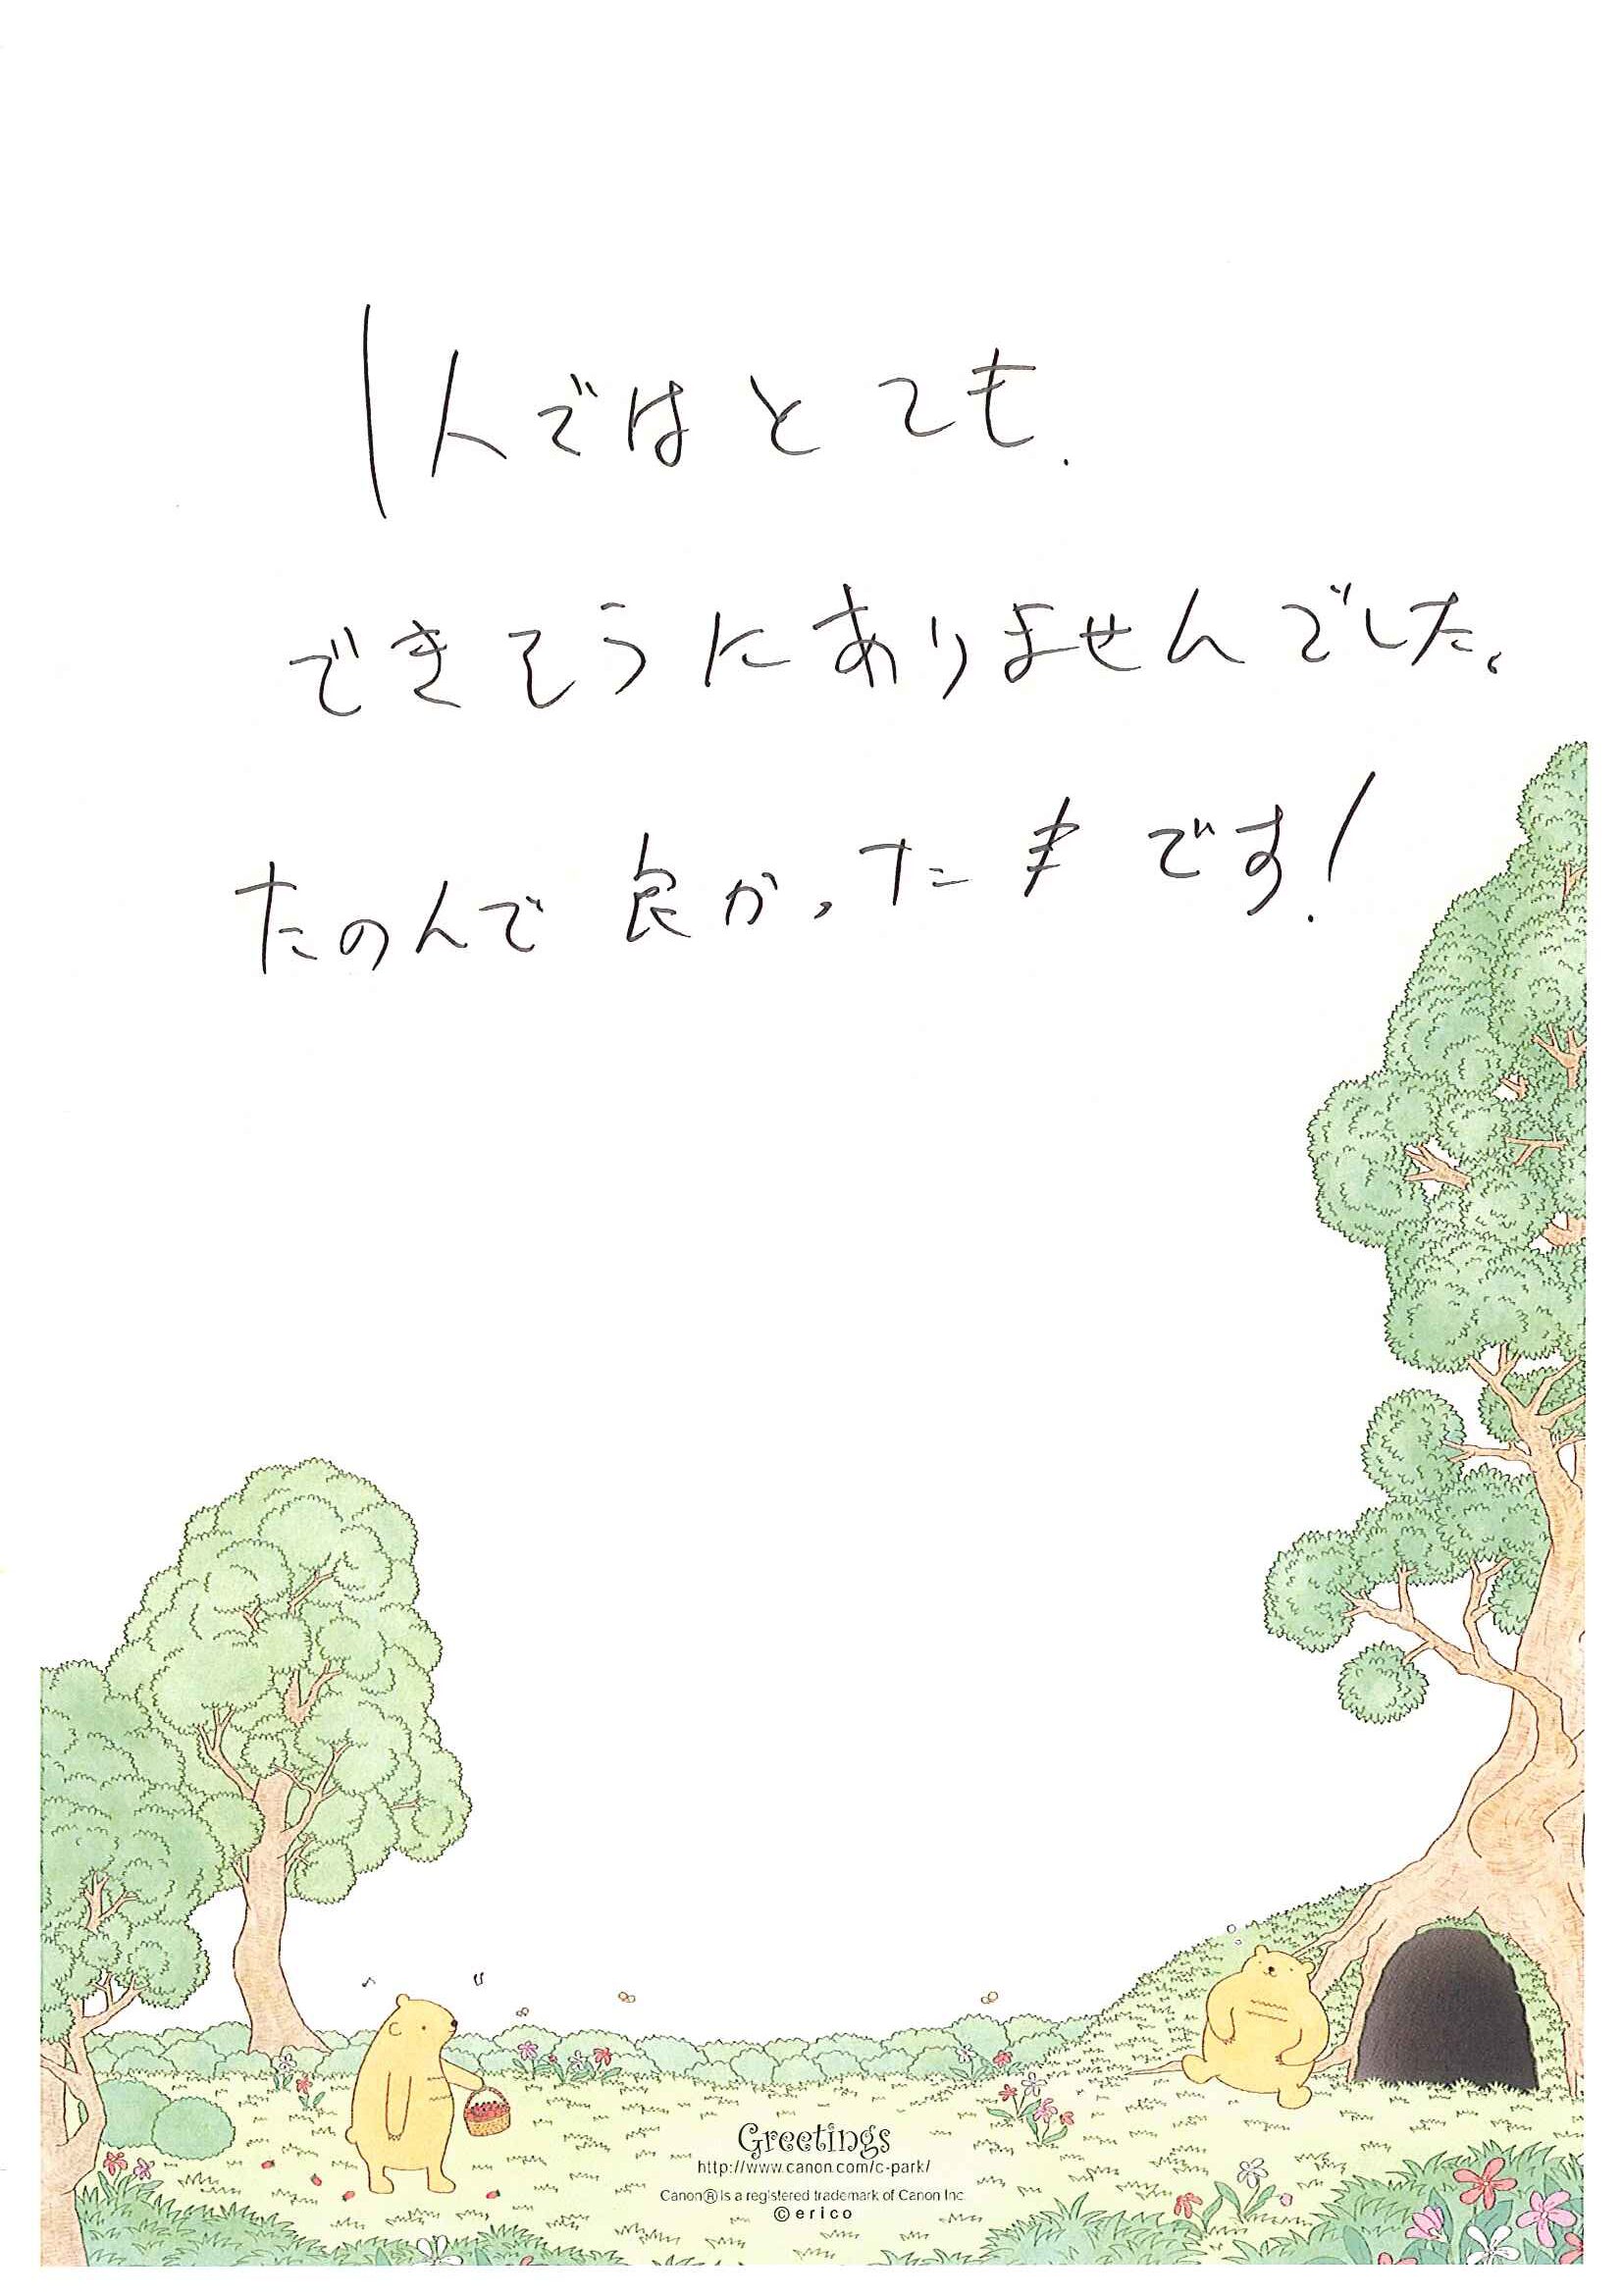 1人ではとても、
できそうにありませんでした。
たのんで良かったです!
Greetings
http://www.canon.com/c-park/
Canon®is a registered trademark of Canon Inc.
©erico